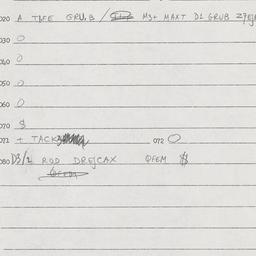 020 A TBFE GRUB / M3+ MAXT D1 GRUB
030 O
040 O
050 O
060 O
070 $
071 + TACK 072 O
080 D3/2 ROD DREJCAX QFEM $